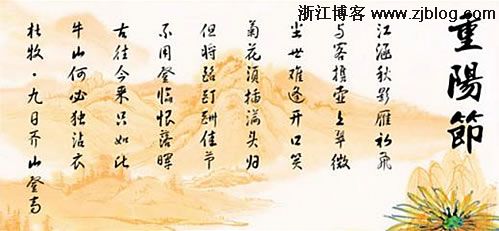 浙江博客 www.zjblog.com
重陽節
江涵秋影雁初飛
与客携壶上翠微
尘世难逢开口笑
菊花须插满头归
但将酩酊酬佳节
不用登临恨落暉
古往今来只如此
牛山何必独沾衣
杜牧·九日齐山登高